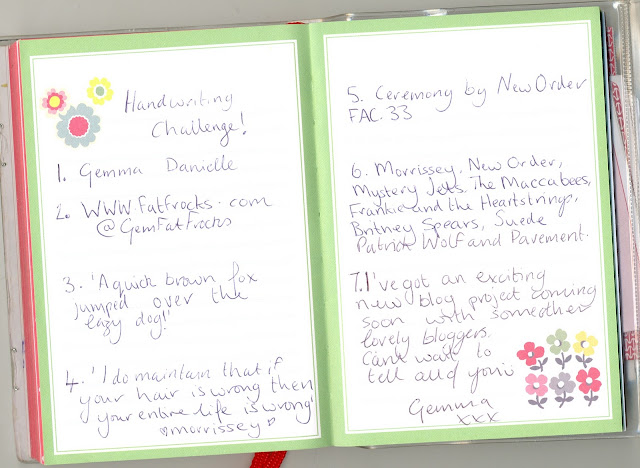 Handwriting
Challenge!
1. Gemma Danielle
2. WWW.Fatfrocks.com
@GemFatFrocks
3. 'A quick brown fox
jumped over the
lazy dog!'
4. 'I do maintain that if
your hair is wrong then
your entire life is wrong'
♡morrissey♡
5. Ceremony by New Order
FAC. 33
6. Morrissey. New Order,
Mystery Jets. The Maccabees,
Frankie and the Heartstrings,
Britney Spears, Suede
Patrick Wolf and Pavement.
7. I've got an exciting
new blog project coming
soon with some other
lovely bloggers.
Can't wait to
tell all of you
Gemma
xxx